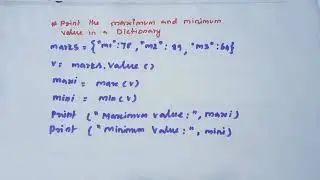 # Print the maximum and minimum
value in a Dictionary
marks = {"m1":78, "m2": 89, "m3":64}
v = marks.value()
maxi = max(v)
mini = min(v)
Print ("Maximum value:", maxi)
print ("Minimum value:", mini)